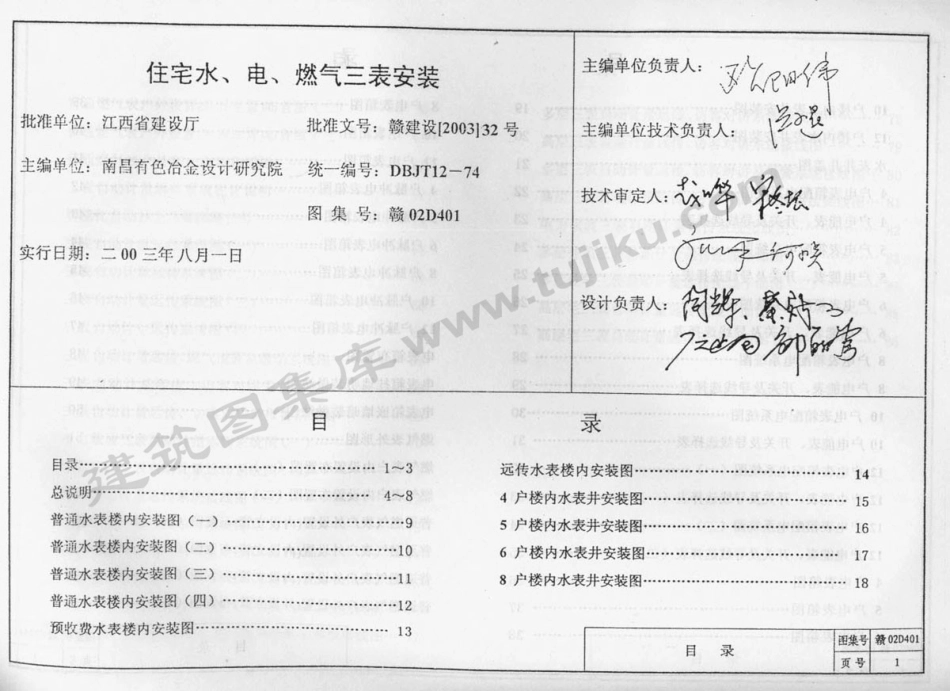 住宅水、电、燃气三表安装
批准单位：江西省建设厅
批准文号：赣建设[2003]32 号
主编单位：南昌有色冶金设计研究院
统一编号：DBJT12－74
图 集 号：赣 02D401
实行日期：二00三年八月一日
主编单位负责人：
主编单位技术负责人：
技术审定人：
设计负责人：
建筑图集库 www.tujiku.com
目 录
目录 1~3
总说明 4~8
普通水表楼内安装图（一） 9
普通水表楼内安装图（二） 10
普通水表楼内安装图（三） 11
普通水表楼内安装图（四） 12
预收费水表楼内安装图 13
远传水表楼内安装图 14
4 户楼内水表井安装图 15
5 户楼内水表井安装图 16
6 户楼内水表井安装图 17
8 户楼内水表井安装图 18
目 录
图集号 赣 02D401
页 号 1